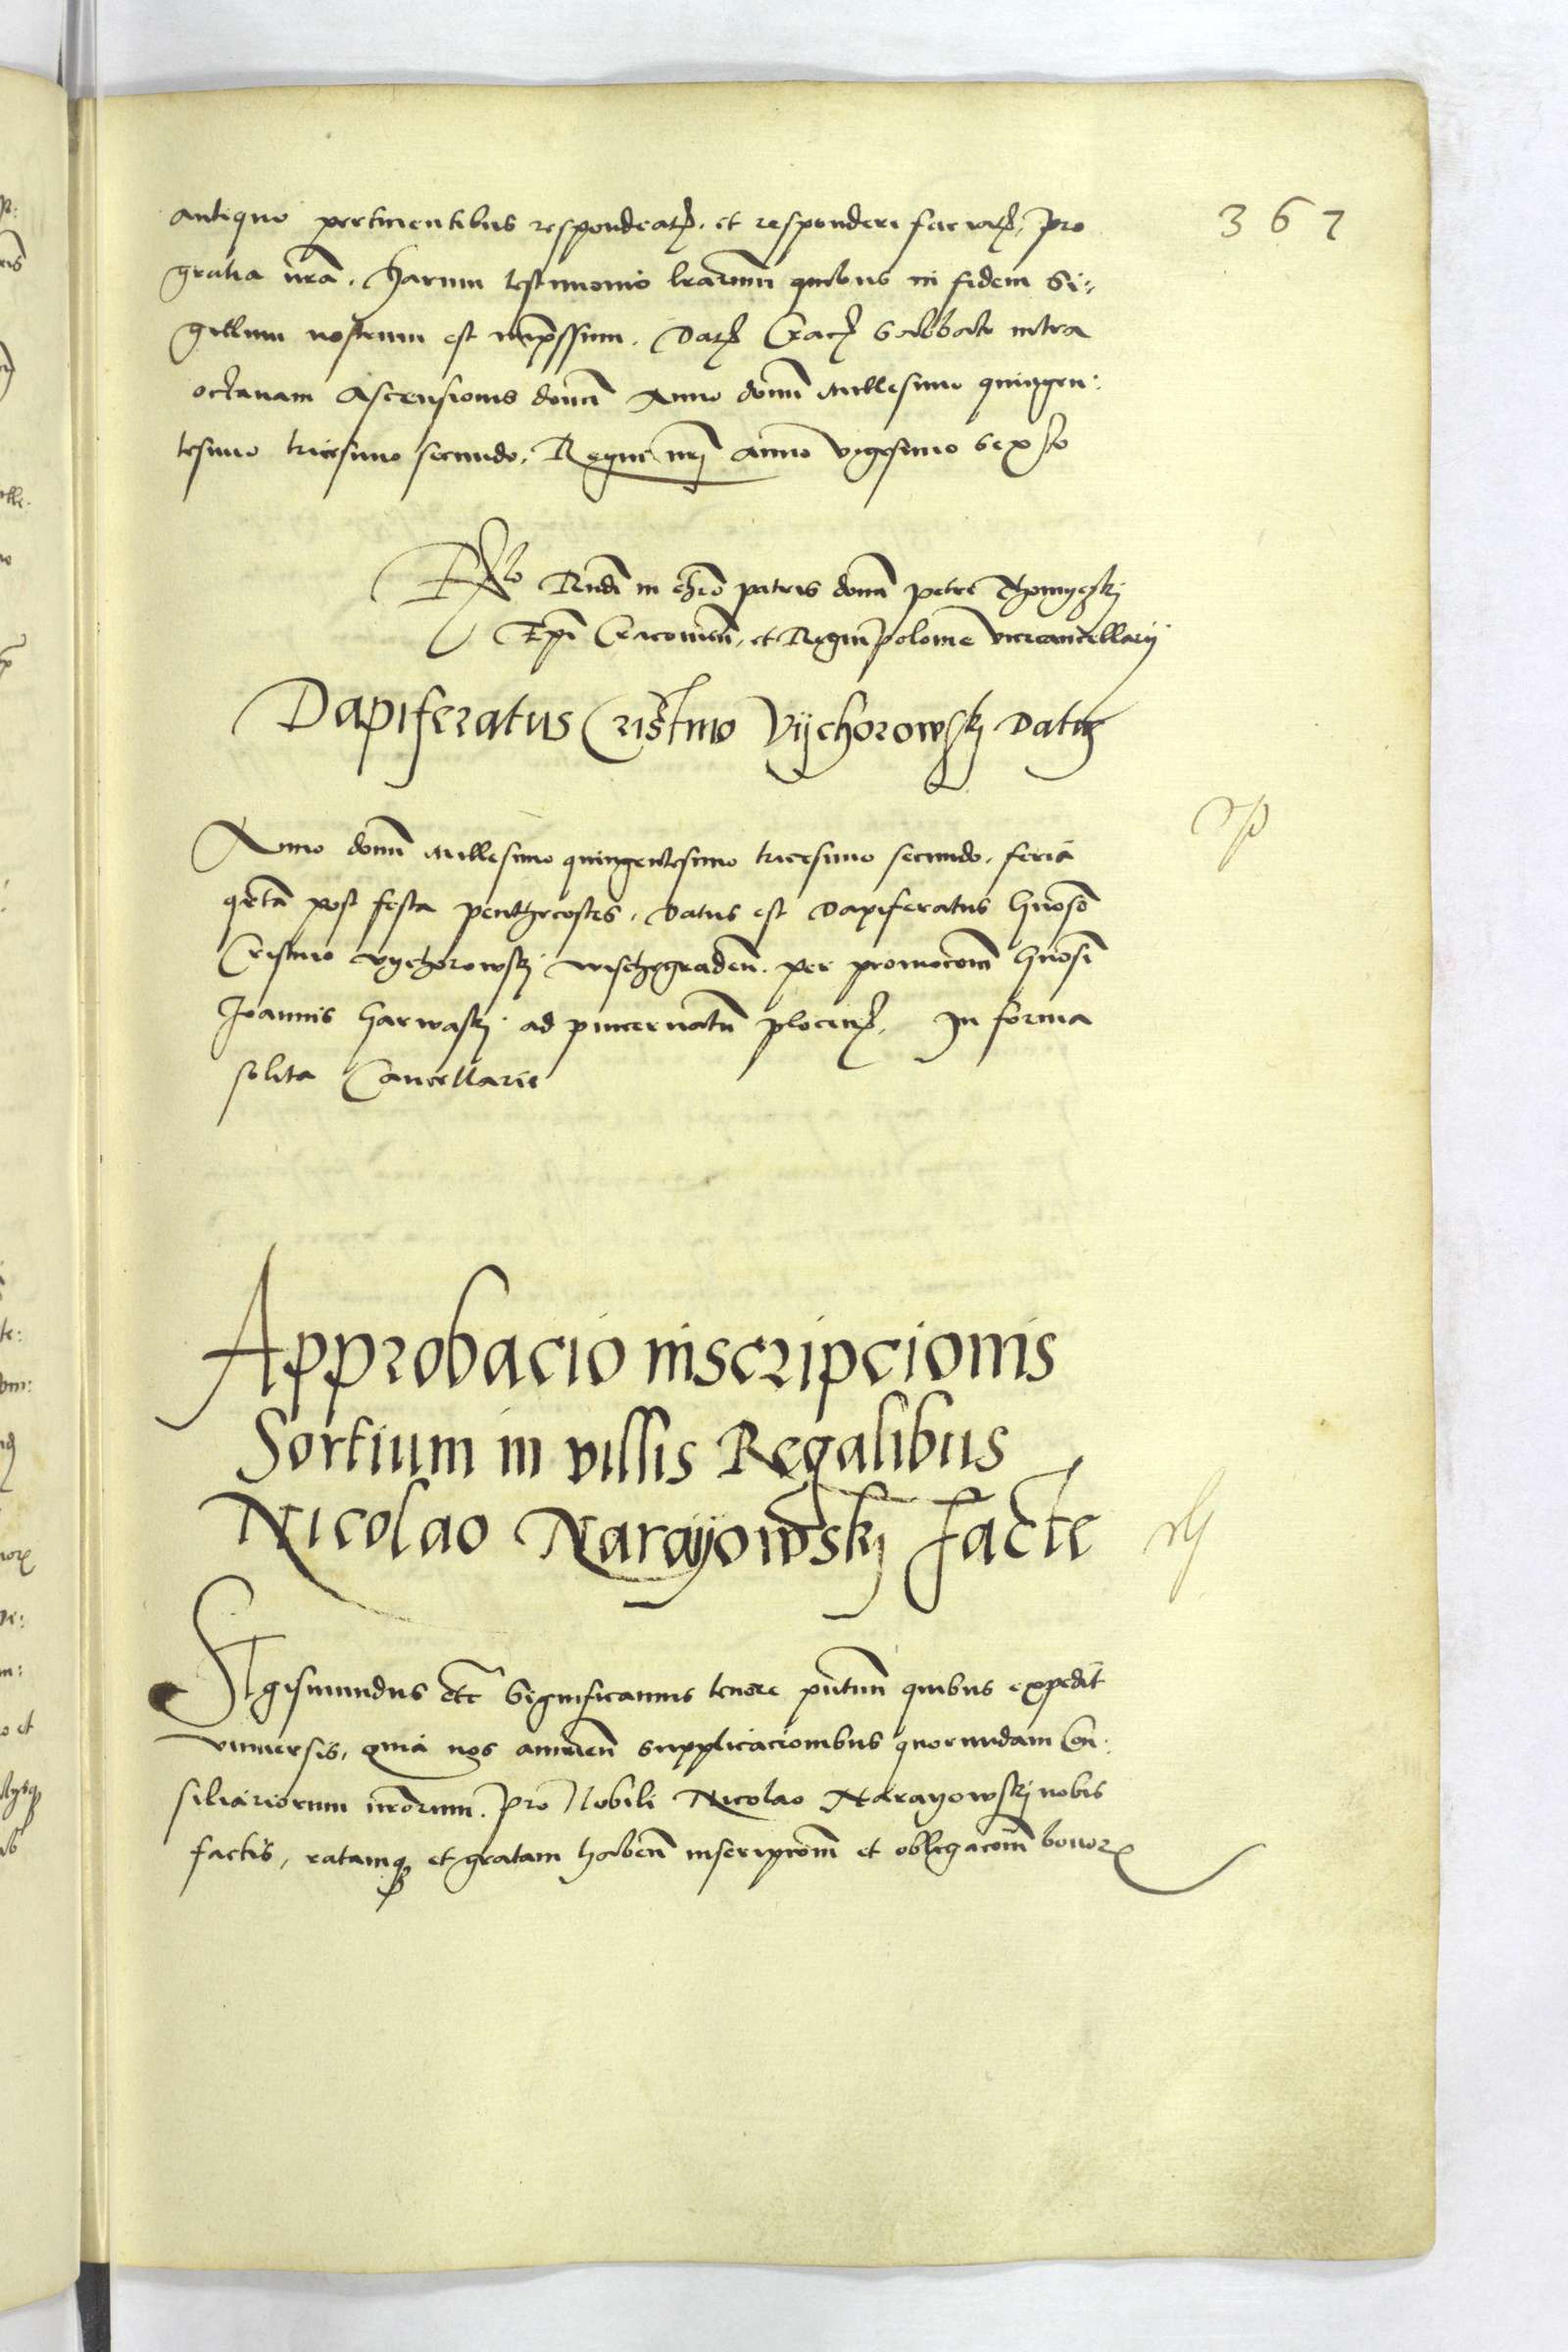 367
antiquo pertinentibus respondeatꝭ. et responderi faciatꝭ, pro
gratia nr̄a. Harum testimonio lr̄arum quibus in fidem Si:
gillum nostrum est imp̄ssum. Datꝭ Cracꝭ Sabbato intra
octavam Ascensionis domī Anno domī Millesimo quingen:
tesimo tricesimo secundo. Regni nr̄j anno vigesimo sexto
Rlo Rn̄di in chr̄o patris domī petri Thomyczkj
Ep̄i Cracovien̄, et Regni polonie vicecancellarij
Dapiferatus Cristino Vychorowskj Datus
Anno domī Millesimo quingentesimo tricesimo secundo. feria
qr̄ta post festa penthecostes. Datus est Dapiferatus Gn̄oso
Cristino Vychorowskj wischegraden̄. per promocom̄ Gn̄osi
Joannis Garwaskj ad pincernatū plocenꝭ. In forma
solita Cancellarie
Approbacio inscripcionis
Sortium in villis Regalibus
Nicolao Narayowskj facte
Sigismundus etc̄ Significamus tenore pn̄tium quibus expedit
universis, quia nos annuen̄ supplicacionibus quorundam Con:
siliariorum nr̄orum. pro Nobili Nicolao Narayowskj nobis
factis, ratamqꝫ et gratam haben̄ inscripcom̄ et obligacom̄ bonorꝭ